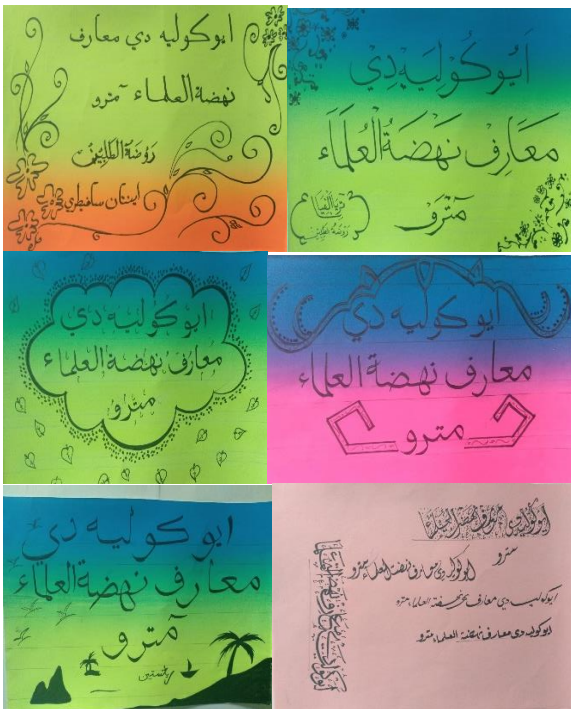 ايوكوليه دي معارف
نهضة العلماء مترو
روضة الطالبين
اينتان سافطري
اَيُوكُولِيَه دِي
مَعَارِف نَهَضَةُ الْعُلَمَاء
مَتْرَو
ايوكوليه دي
معارف نهضة العلماء
مترو
ايوكوليه دي
معارف نهضة العلماء
مترو
ايوكوليه دي
معارف نهضة العلماء
مترو
مترو
ايوكوليه دي معارف نهضة العلماء مترو
ايوكوليه دي معارف نهضة العلماء مترو
ايوكوليه دي معارف نهضة العلماء مترو